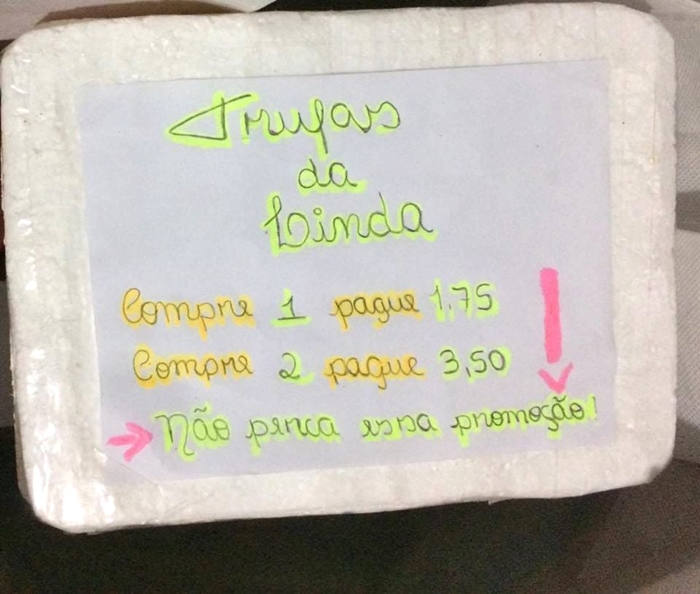 Trufas
da
Linda
Compre 1 pague 1,75
Compre 2 pague 3,50
Não perca essa promoção!